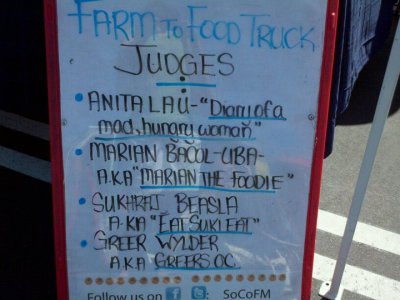 FARM TO FOOD TRUCK
JUDGES
• ANITA LAU - "Diary of a
mad, hungry woman"
• MARIAN BACOL-UBA -
A.K.A "MARIAN THE FOODIE"
• SUKHRAJ BEASLA
A.K.A "EATSUKIEAT"
• GREER WYLDER
A.K.A GREERS OC
Follow us on f t: SoCoFM